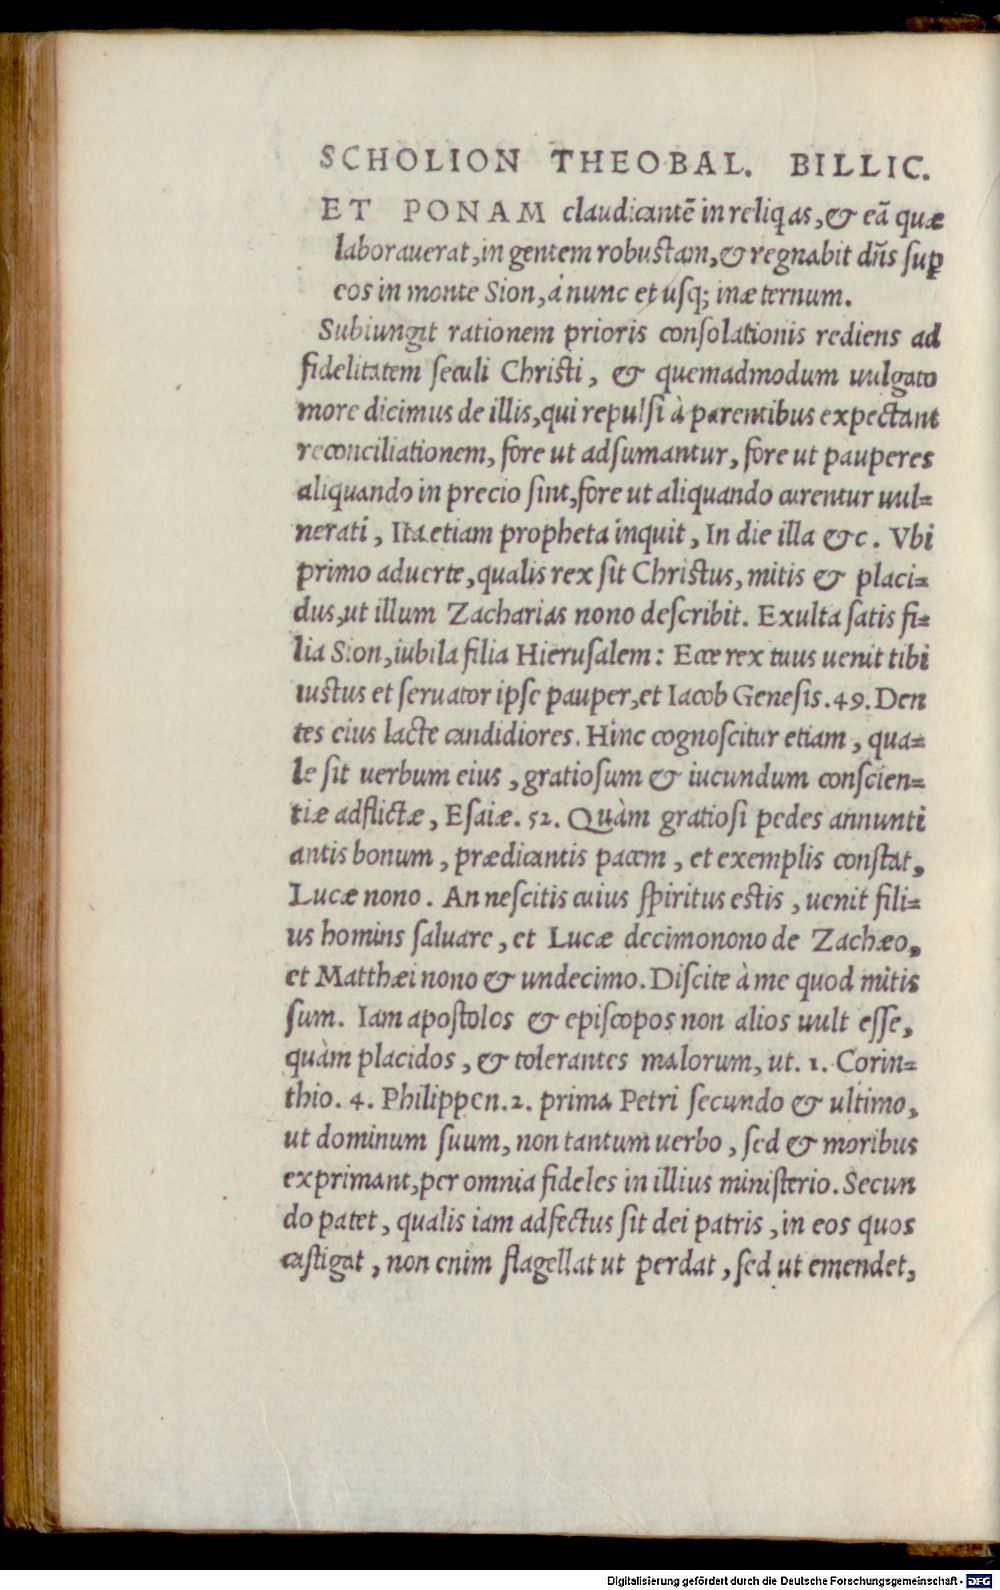 SCHOLION THEOBAL. BILLIC.
ET PONAM claudicantē in reliq as, & eā quæ
laborauerat, in gentem robustam, & regnabit dñs suꝑ
eos in monte Sion, á nunc et usq; inæternum.
Subiungit rationem prioris consolationis rediens ad
fidelitatem seculi Christi, & quemadmodum uulgato
more dicimus de illis, qui repulsi à parentibus expectant
reconciliationem, fore ut adsumantur, fore ut pauperes
aliquando in precio sint, fore ut aliquando curentur uul-
nerati, Ita etiam propheta inquit, In die illa &c. Vbi
primo aduerte, qualis rex sit Christus, mitis & placi-
dus, ut illum Zacharias nono describit. Exulta satis fi-
lia Sion, iubila filia Hierusalem: Ecce rex tuus uenit tibi
iustus et seruator ipse pauper, et Iacob Genesis. 49. Den
tes eius lacte candidiores. Hinc cognoscitur etiam, qua-
le sit uerbum eius, gratiosum & iucundum conscien-
tiæ adflictæ, Esaiæ. 52. Quàm gratiosi pedes annunti
antis bonum, prædicantis pacem, et exemplis constat,
Lucæ nono. An nescitis cuius spiritus estis, uenit fili-
us homins saluare, et Lucæ decimonono de Zachæo,
et Matthæi nono & undecimo. Discite à me quod mitis
sum. Iam apostolos & episcopos non alios uult esse,
quàm placidos, & tolerantes malorum, ut. 1. Corin-
thio. 4. Philippen. 2. prima Petri secundo & ultimo,
ut dominum suum, non tantum uerbo, sed & moribus
exprimant, per omnia fideles in illius ministerio. Secun
do patet, qualis iam adfectus sit dei patris, in eos quos
castigat, non enim flagellat ut perdat, sed ut emendet,
Digitalisierung gefördert durch die Deutsche Forschungsgemeinschaft - DFG